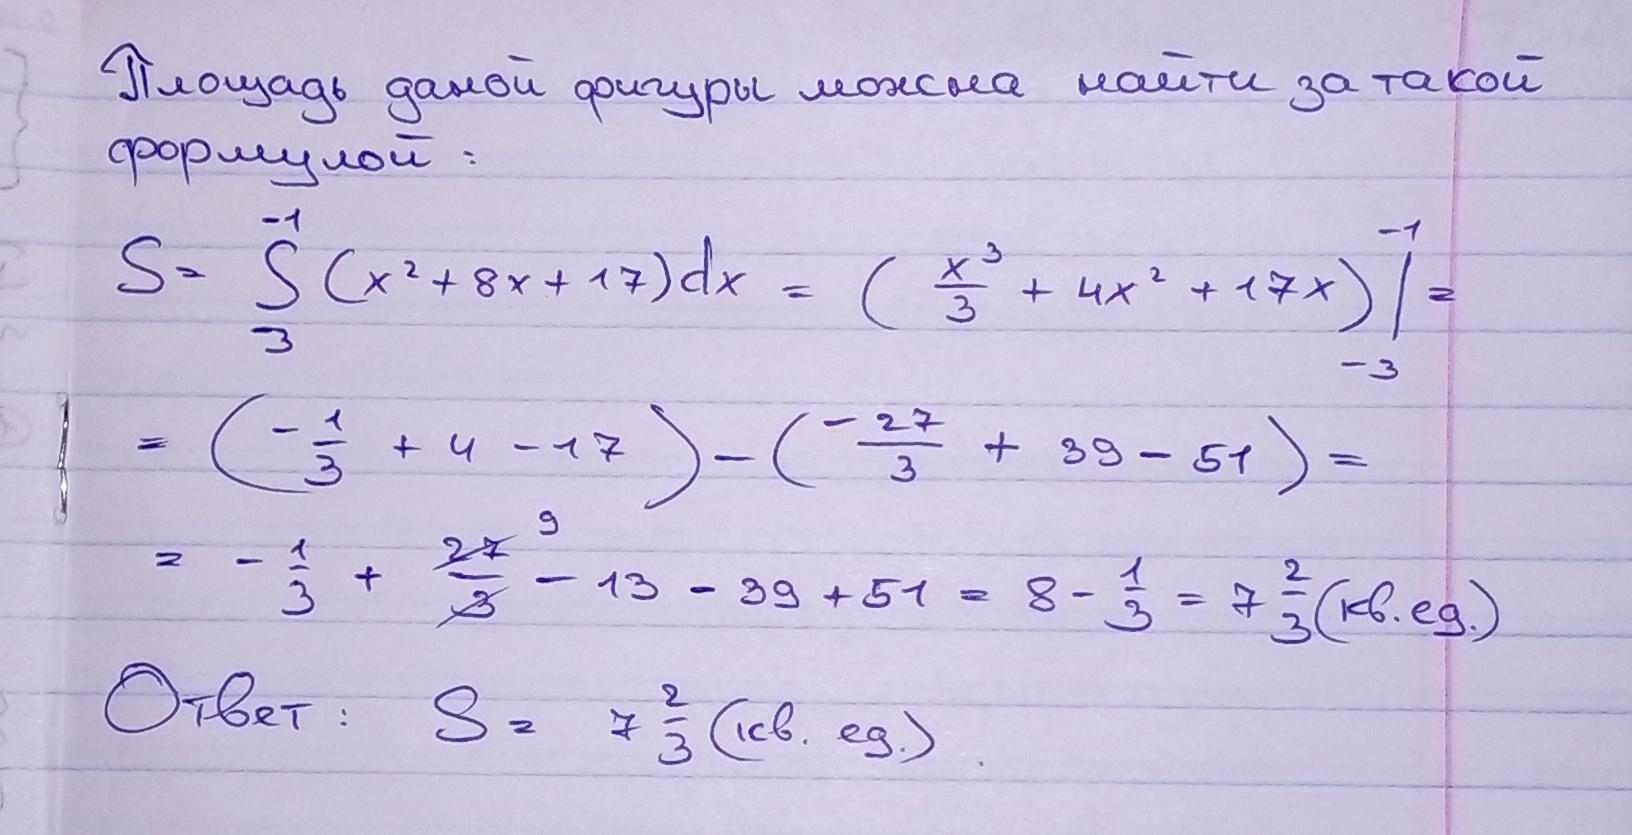 Площадь даной фигуры можна найти за такой
формулой:
S = ∫_{3}^{-1} (x² + 8x + 17) dx = (x³/3 + 4x² + 17x) |_{-3}^{-1} =
= (-1/3 + 4 - 17) - (-27/3 + 39 - 51) =
= -1/3 + 27/3 9 - 13 - 39 + 51 = 8 - 1/3 = 7 2/3 (кв. ед.)
Ответ: S = 7 2/3 (кв. ед.).